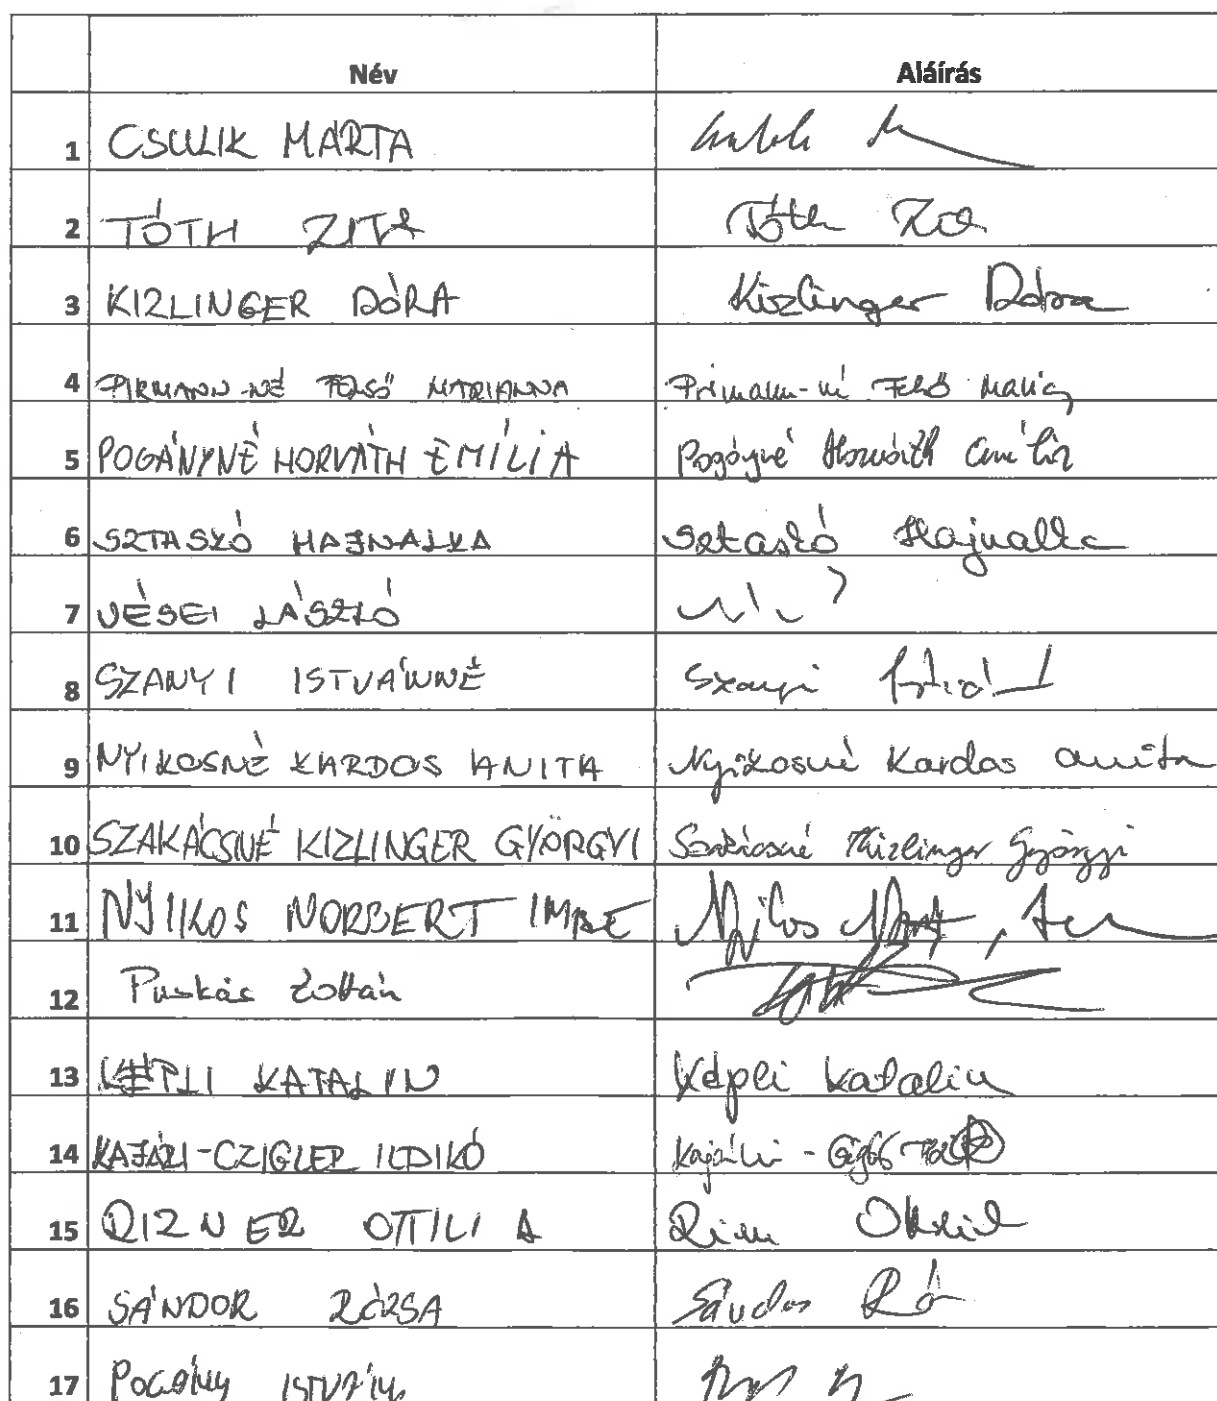 Név Aláírás
1 CSULIK MÁRTA
2 TÓTH ZITA Tóth Zita
3 KIZLINGER DÓRA Kizlinger Dóra
4 PIRMANN-NÉ FELSŐ MARIANNA
5 POGÁNYNÉ HORVÁTH EMÍLIA Pogányné Horváth Emília
6 SZTASKÓ HAJNALKA Sztaskó Hajnalka
7 VÉSEI LÁSZLÓ
8 SZANYI ISTVÁNNÉ Szanyi
9 NYIKOSNÉ KARDOS ANITA Nyikosné Kardos Anita
10 SZAKÁCSNÉ KIZLINGER GYÖRGYI Szakácsné Kizlinger Györgyi
11 NYIKOS NORBERT IMRE Nyikos
12 Puskás Zoltán
13 KÉPLI KATALIN Képli Katalin
14 KAJÁLI-CZIGLER ILDIKÓ Kajáli -
15 RIZNER OTTILIA
16 SÁNDOR RÓZSA Sándor Ró
17 POGÁNY ISTVÁN